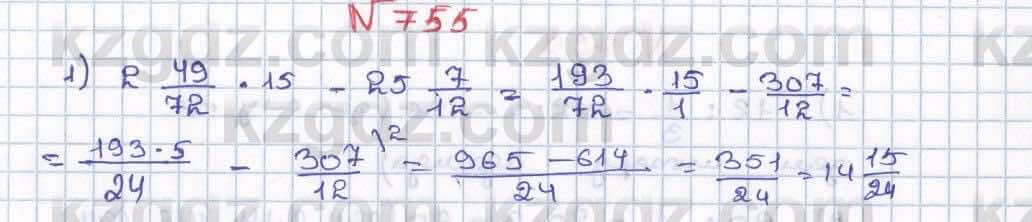 № 755
1) 2 49/72 · 15 - 25 7/12 = 193/72 · 15/1 - 307/12 =
= 193·5/24 - 307/12 \2 = 965-614/24 = 351/24 = 14 15/24
kzgdz.com kzgdz.com kz
kzgdz.com